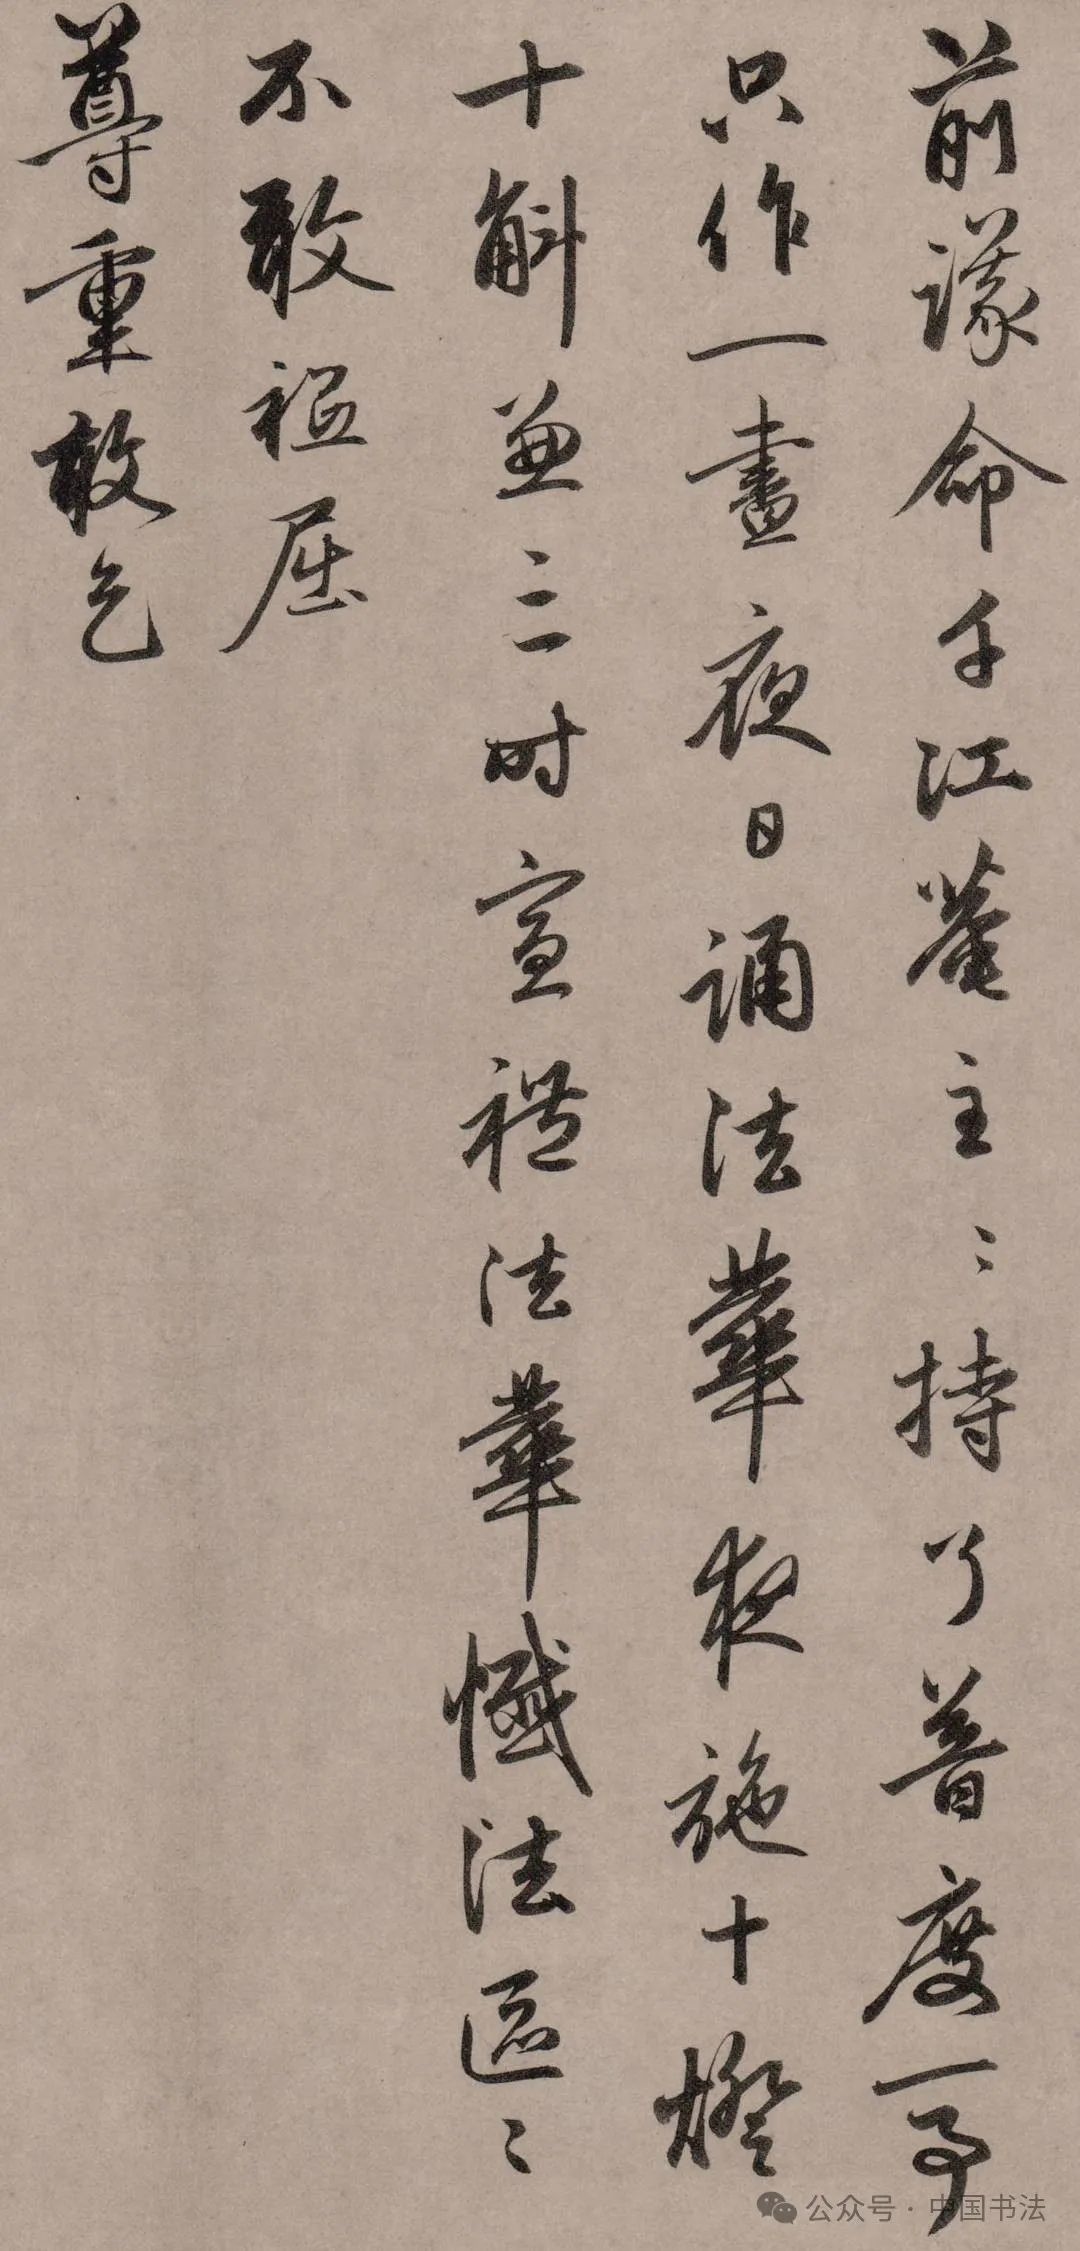 前議命千江菴主〻持了普度一事
只作一晝夜日誦法華夜施十燈
十斛並三时宣禮法華懺法區〻
不敢祗屈
尊重敢乞
公众号·中国书法